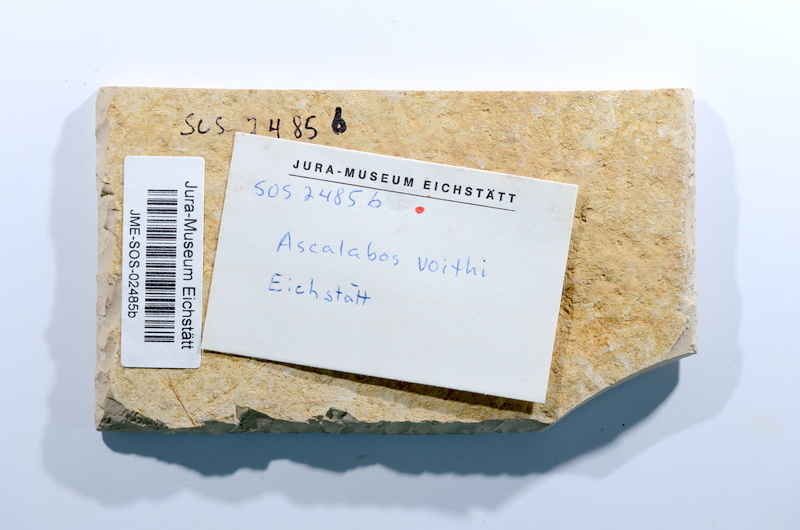 SOS 2485 b
JURA-MUSEUM EICHSTÄTT
SOS 2485 b
Ascalabos voithi
Eichstätt
Jura-Museum Eichstätt
JME-SOS-02485b